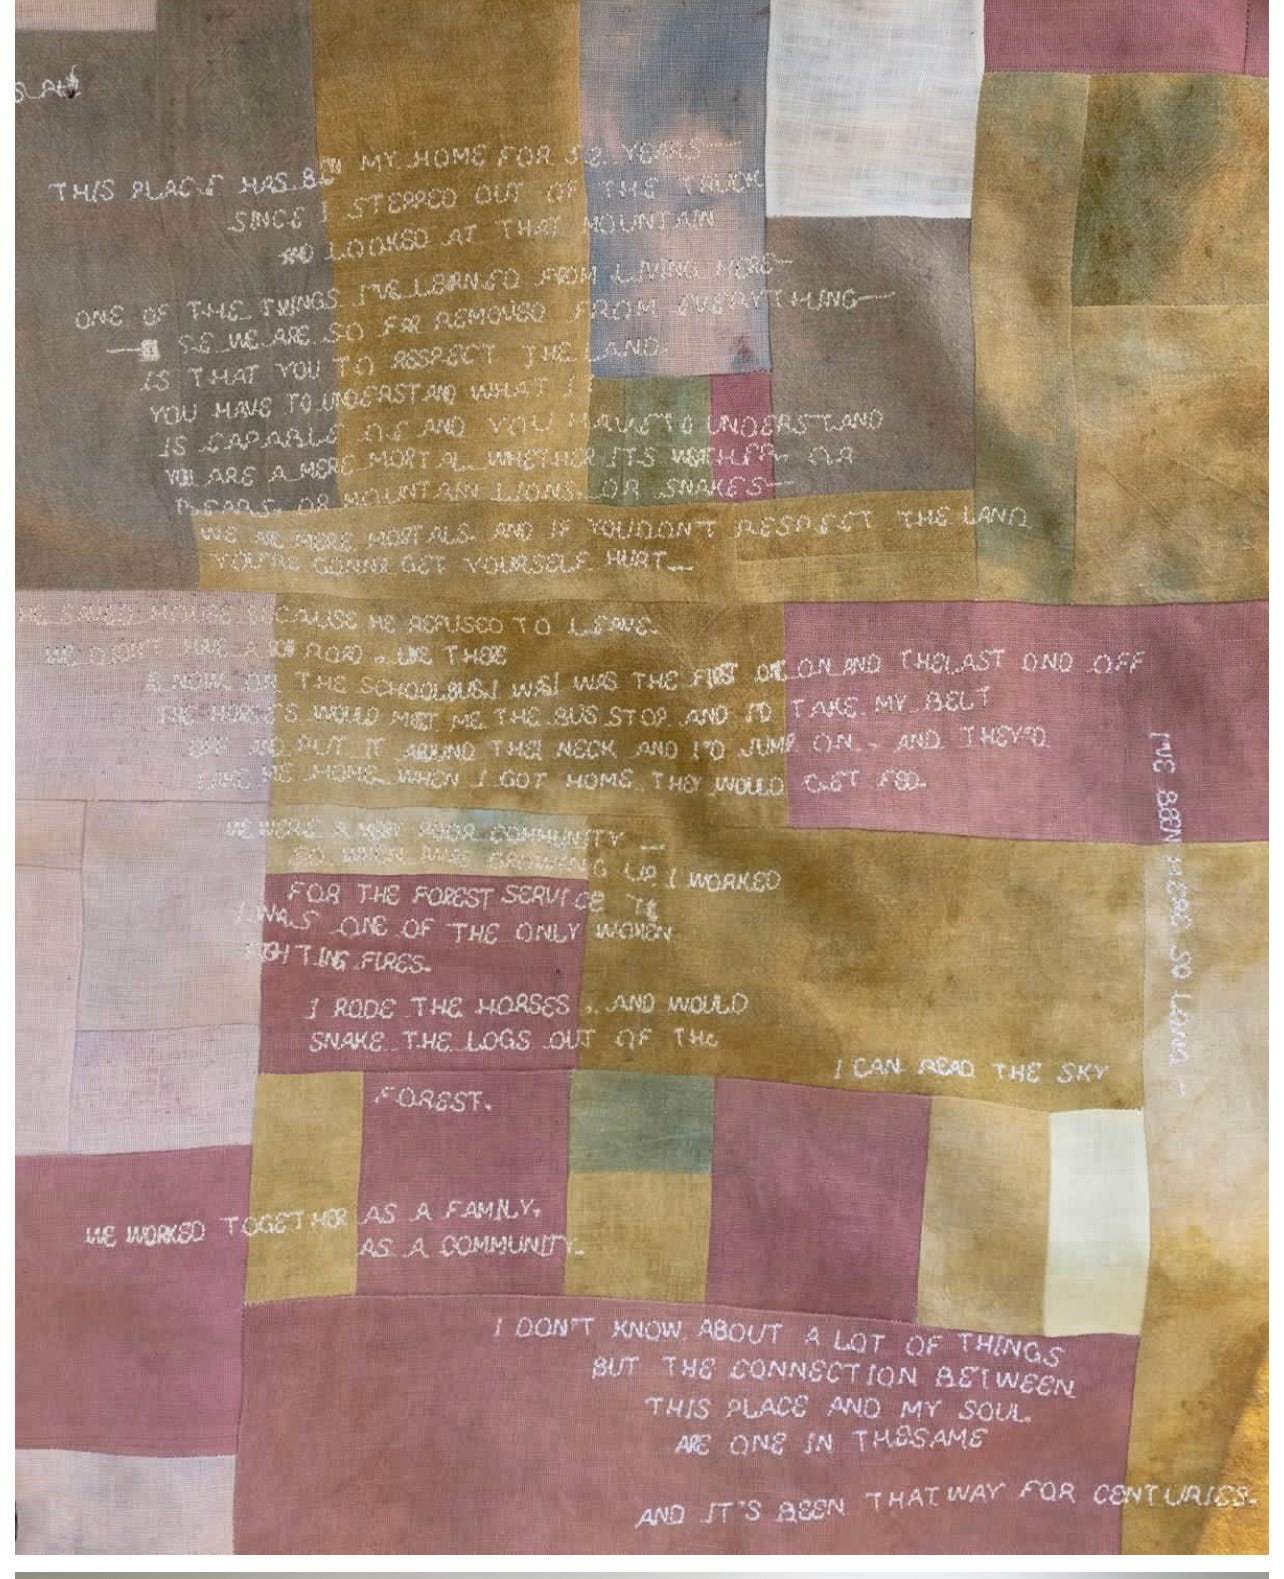 THIS PLACE HAS BEEN MY HOME FOR 52 YEARS—
SINCE I STEPPED OUT OF THE TRUCK
AND LOOKED AT THAT MOUNTAIN
ONE OF THE THINGS I'VE LEARNED FROM LIVING HERE—
SE WE ARE SO FAR REMOVED FROM EVERYTHING—
IS THAT YOU TO RESPECT THE LAND.
YOU HAVE TO UNDERSTAND WHAT IT
IS CAPABLE OF AND YOU HAVE TO UNDERSTAND
YOU ARE A MERE MORTAL. WHETHER IT'S WEATHER OR
BEARS, OR MOUNTAIN LIONS, OR SNAKES—
WE ARE MERE MORTALS. AND IF YOU DON'T RESPECT THE LAND
YOU'RE GONNA GET YOURSELF HURT—
HE SAVED HOUSE BECAUSE HE REFUSED TO LEAVE.
WE DIDN'T HAVE A ROAD . LIKE THERE
IS NOW. ON THE SCHOOLBUS, I WAS I WAS THE FIRST ONE ON AND THE LAST OND OFF
THE HORSES WOULD MEET ME THE BUS STOP AND I'D TAKE MY BELT
OFF AND PUT IT AROUND THEI NECK AND I'D JUMP ON. AND THEY'D
TAKE ME HOME. WHEN I GOT HOME THEY WOULD GET FED.
WE WERE A VERY POOR COMMUNITY —
SO WHEN I WAS GROWING UP I WORKED
FOR THE FOREST SERVICE
I WAS ONE OF THE ONLY WOMEN
FIGHTING FIRES.
I RODE THE HORSES . . AND WOULD
SNAKE THE LOGS OUT OF THE
FOREST.
I CAN READ THE SKY
I'VE BEEN HERE SO LONG —
WE WORKED TOGETHER AS A FAMILY,
AS A COMMUNITY.
I DON'T KNOW ABOUT A LOT OF THINGS
BUT THE CONNECTION BETWEEN
THIS PLACE AND MY SOUL.
ARE ONE IN THE SAME
AND IT'S BEEN THAT WAY FOR CENTURIES.